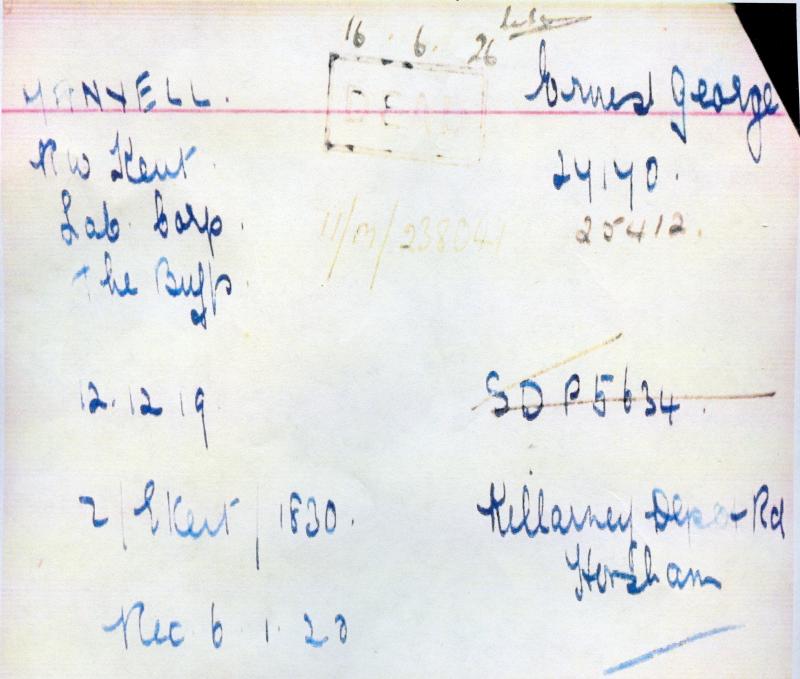 16 . 6. 26
DEAD
Ernest George
R W Kent. 24140.
Lab. Corp. 11/M/238041 25412.
The Buffs.
12.12 19 SDP5634.
2/E Kent/1830. Killarney Depot Rd
Horsham
Rec 6 1 20